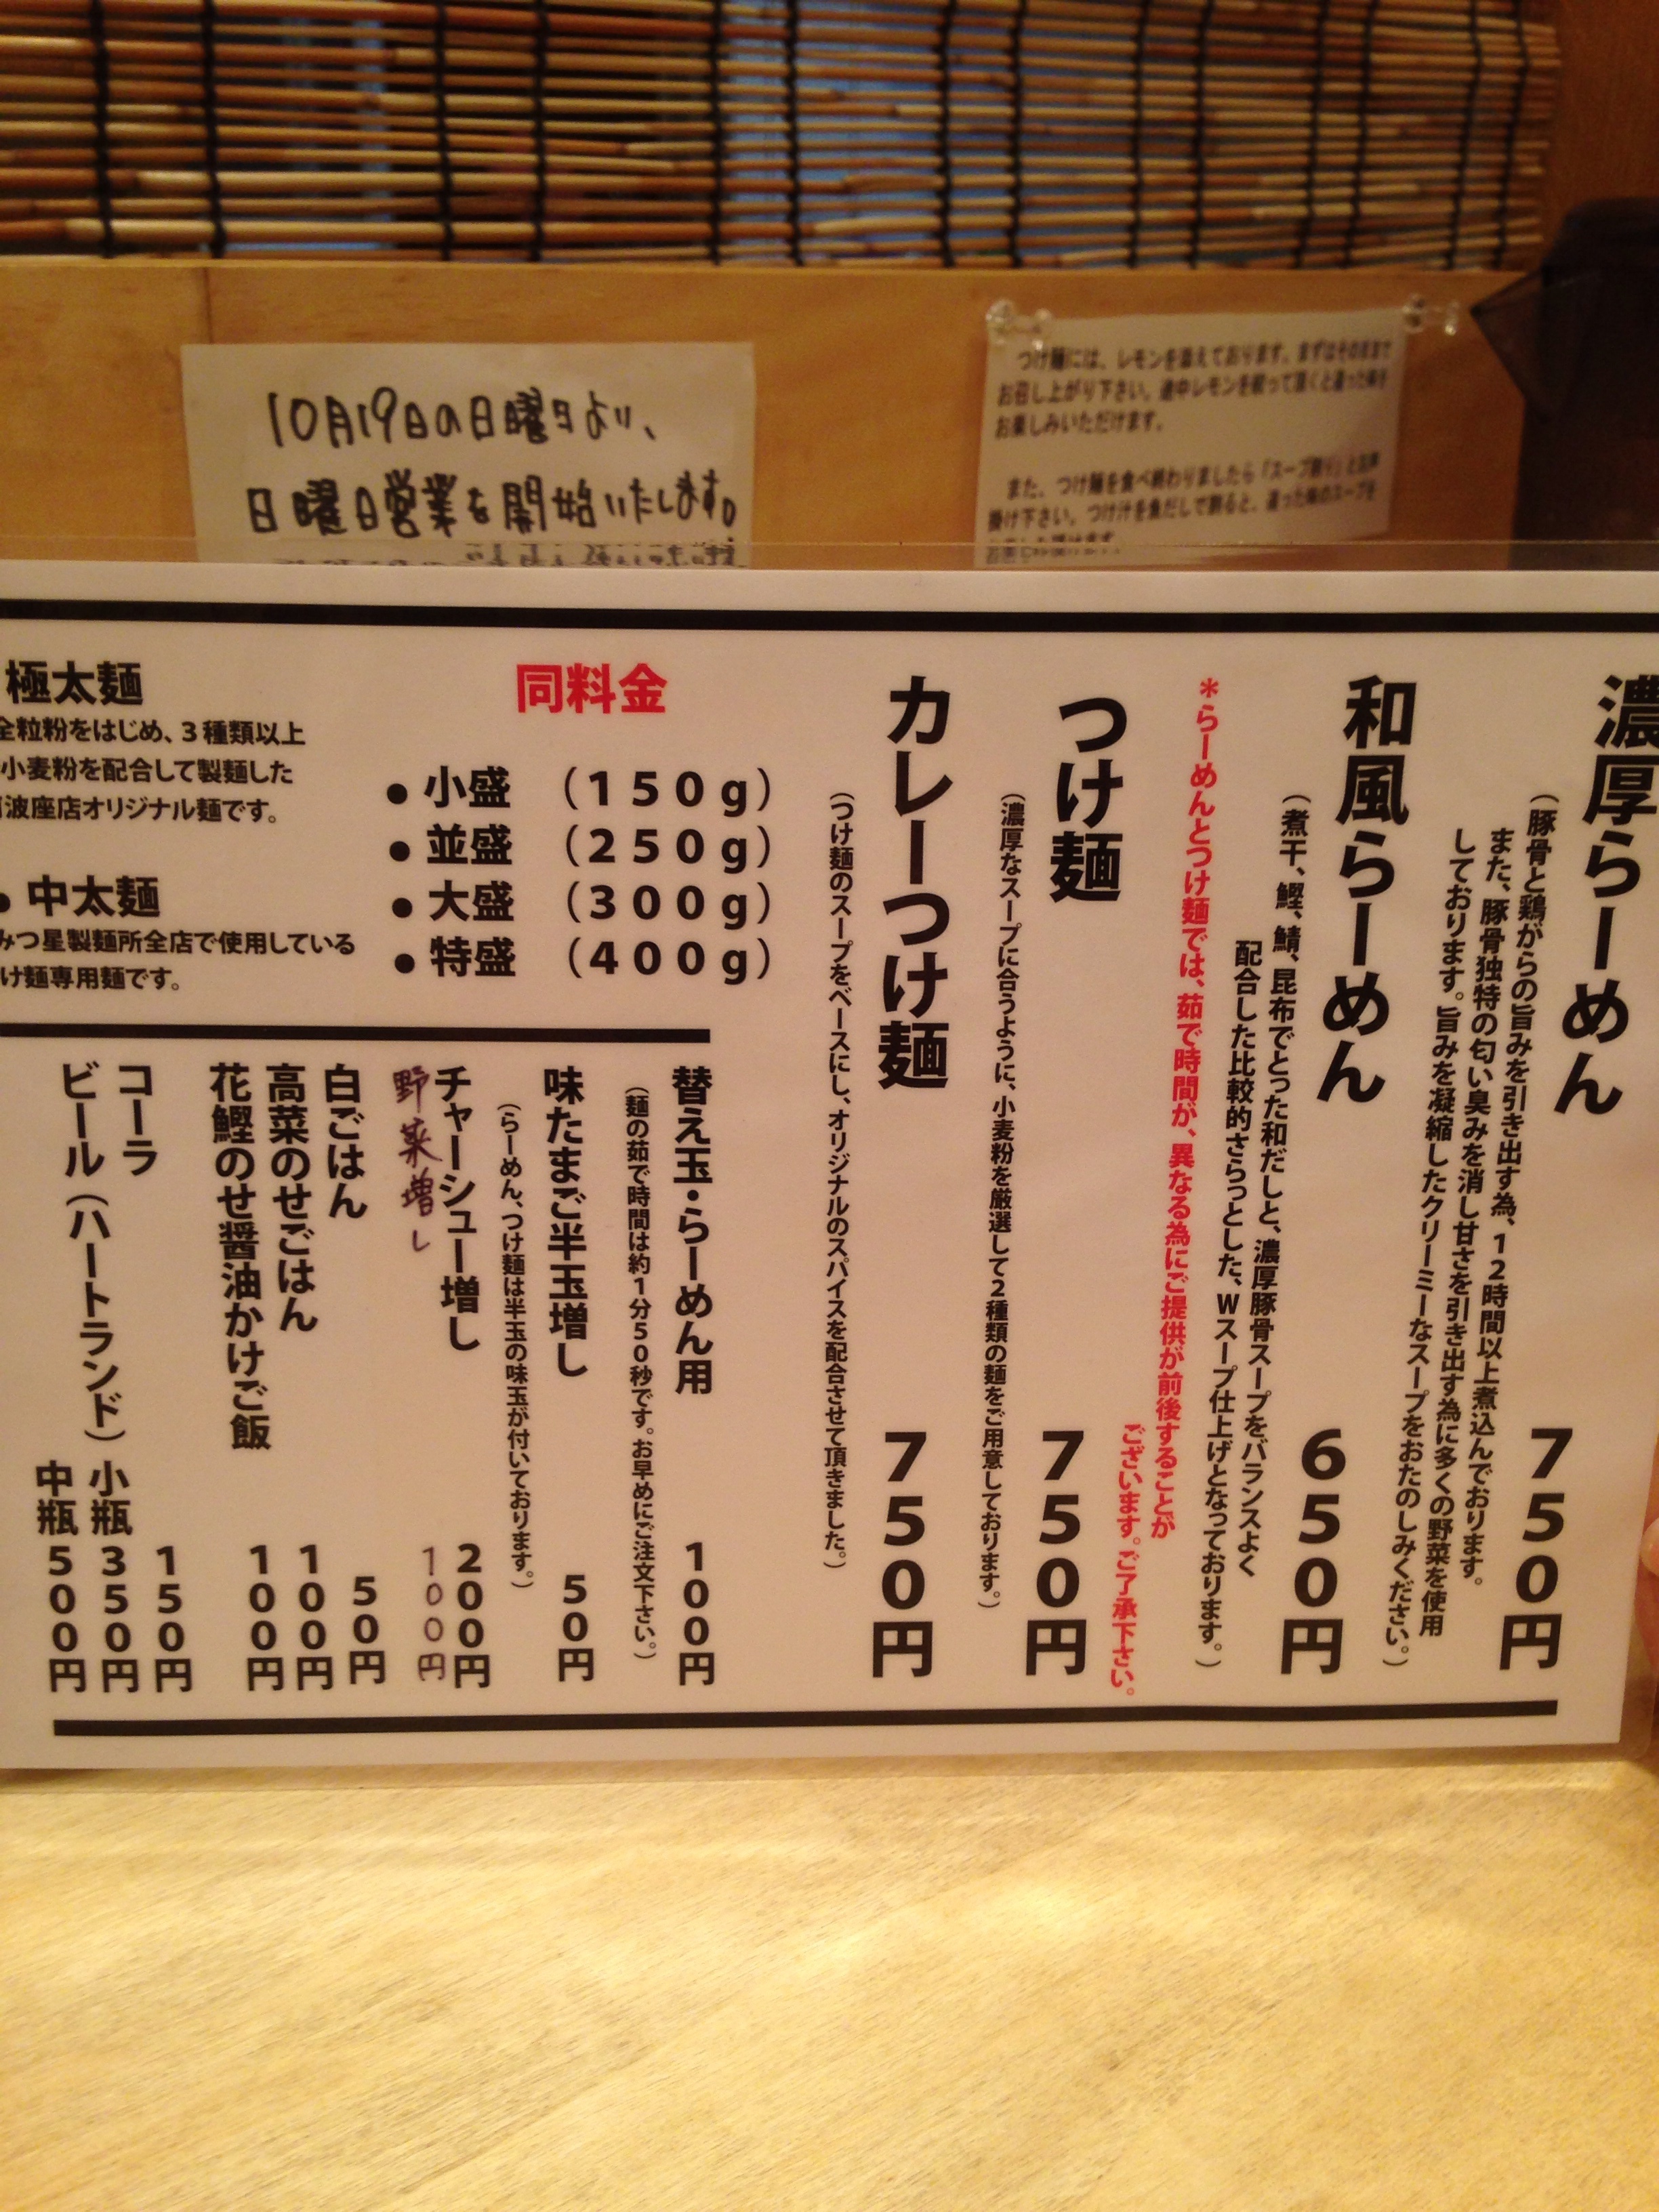 10月19日の日曜日より、
日曜日営業を開始いたします。
つけ麺には、レモンを添えております。まずはそのままで
お召し上がり下さい。途中レモンを絞って頂くと違った味を
お楽しみいただけます。
また、つけ麺を食べ終わりましたら「スープ割り」とお声
掛け下さい。つけ汁を魚だしで割ると、違った味のスープを
濃厚らーめん
750円
（豚骨と鶏がらの旨みを引き出す為、12時間以上煮込んでおります。
また、豚骨独特の匂い臭みを消し甘さを引き出す為に多くの野菜を使用
しております。旨みを凝縮したクリーミーなスープをおたのしみください。）
和風らーめん
650円
（煮干、鰹、鯖、昆布でとった和だしと、濃厚豚骨スープをバランスよく
配合した比較的さらっとした、Wスープ仕上げとなっております。）
＊らーめんとつけ麺では、茹で時間が、異なる為にご提供が前後することが
ございます。ご了承下さい。
つけ麺
750円
（濃厚なスープに合うように、小麦粉を厳選して2種類の麺をご用意しております。）
カレーつけ麺
750円
（つけ麺のスープをベースにし、オリジナルのスパイスを配合させて頂きました。）
同料金
● 小盛 （150g）
● 並盛 （250g）
● 大盛 （300g）
● 特盛 （400g）
極太麺
全粒粉をはじめ、3種類以上
小麦粉を配合して製麺した
波座店オリジナル麺です。
● 中太麺
みつ星製麺所全店で使用している
け麺専用麺です。
替え玉・らーめん用 100円
（麺の茹で時間は約1分50秒です。お早めにご注文下さい。）
味たまご半玉増し 50円
（らーめん、つけ麺は半玉の味玉が付いております。）
チャーシュー増し 200円
野菜増し 100円
白ごはん 50円
高菜のせごはん 100円
花鰹のせ醤油かけご飯 100円
コーラ 150円
ビール（ハートランド） 小瓶 350円
中瓶 500円